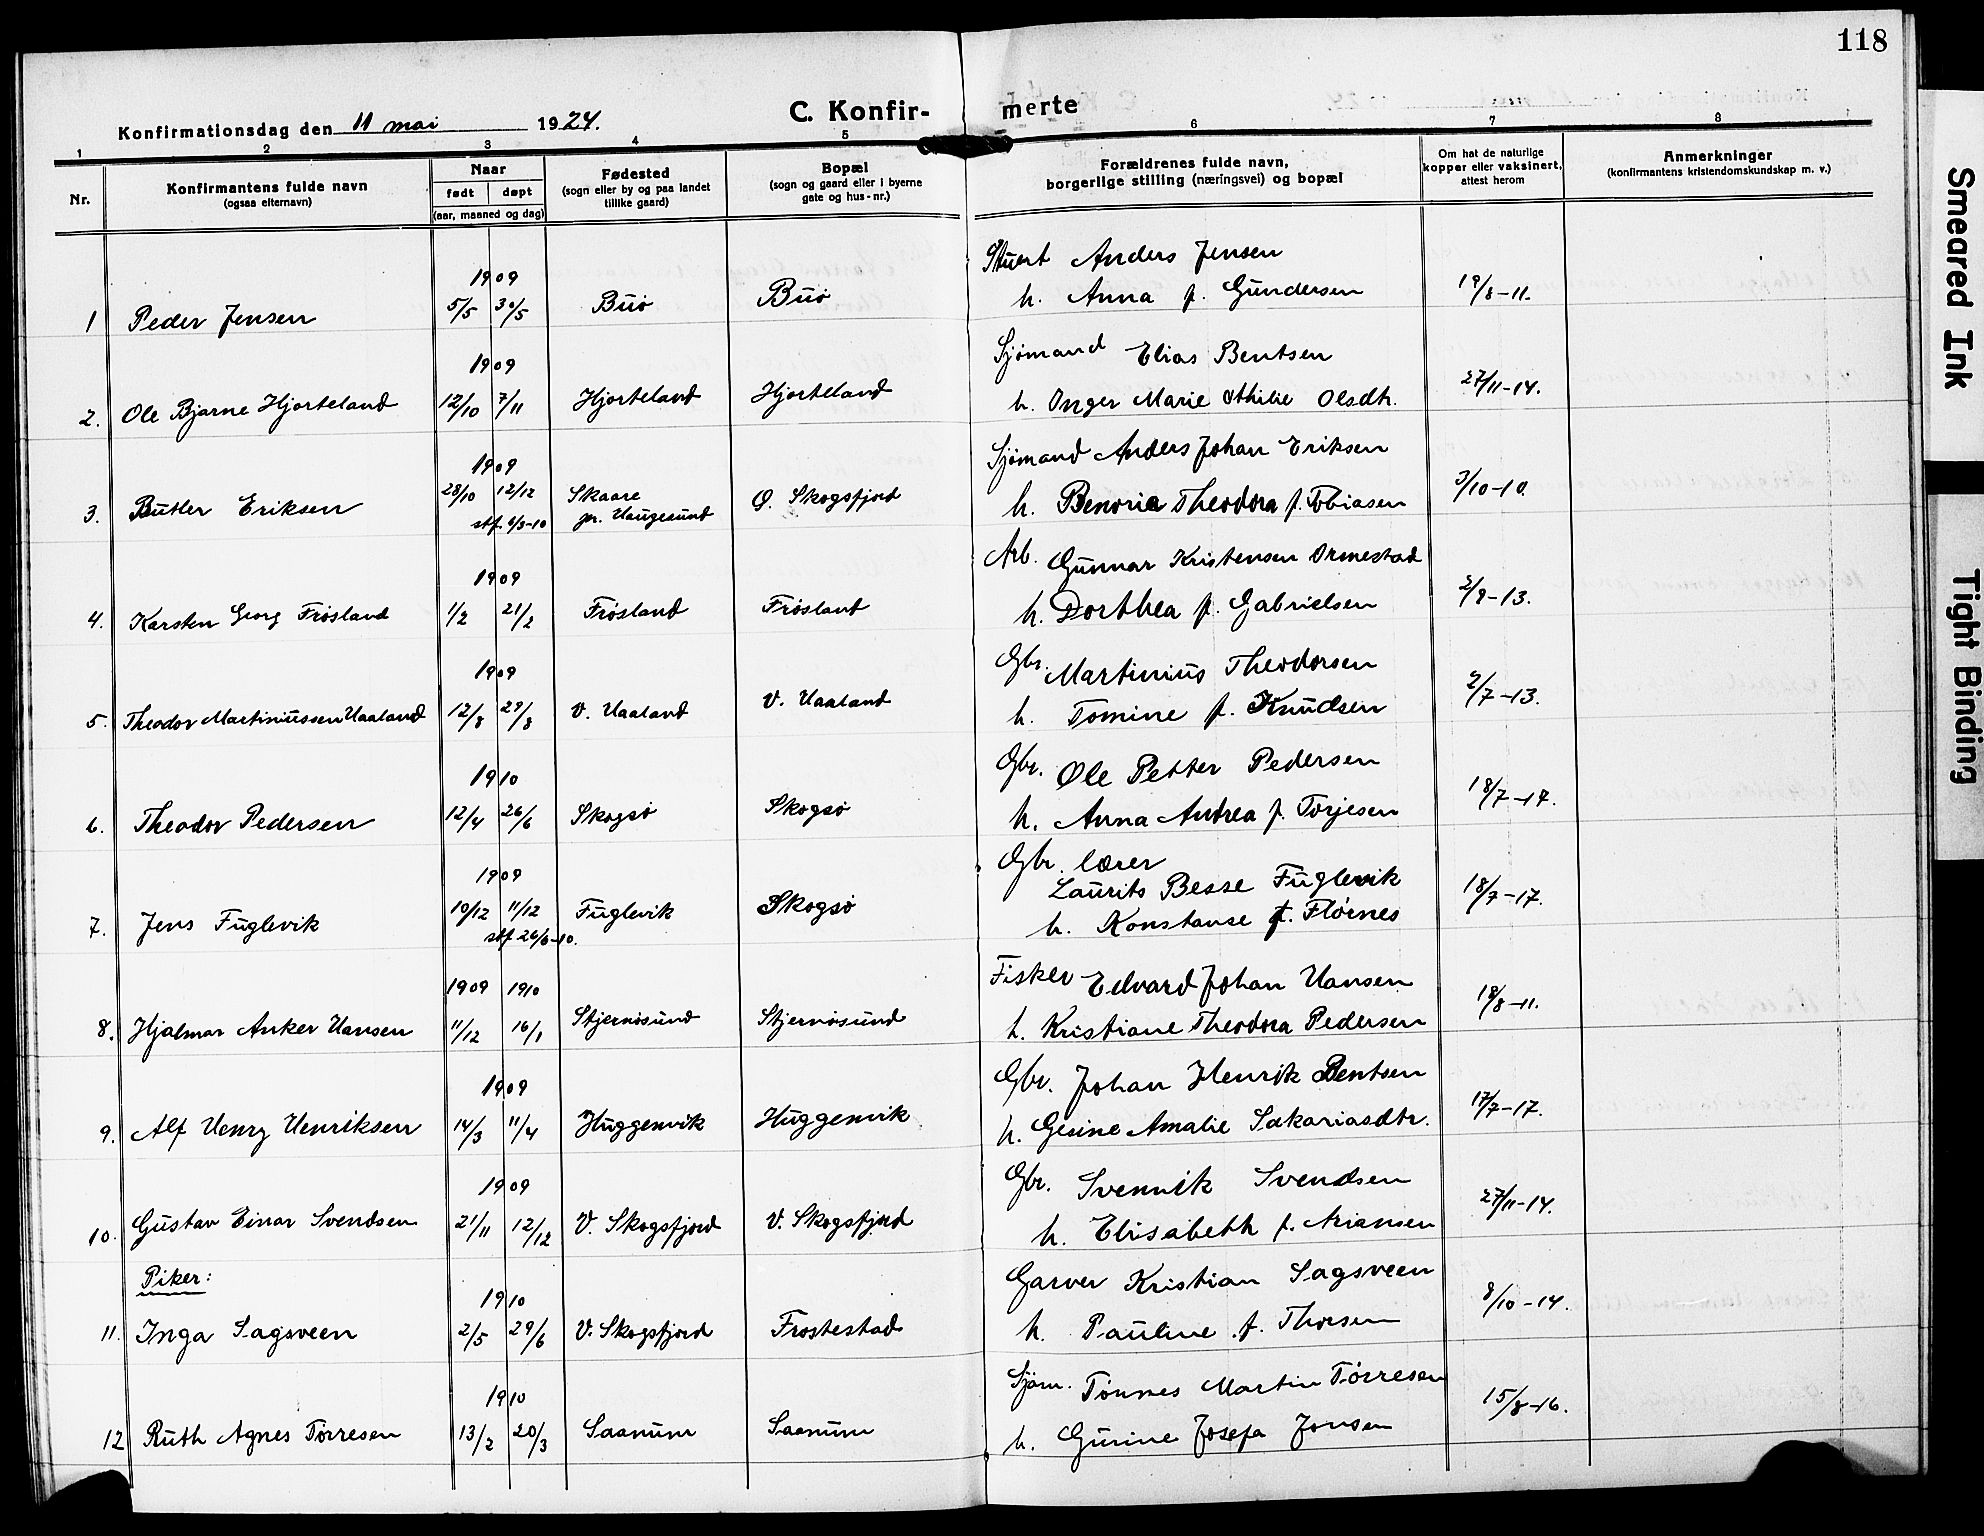 118
C. Konfir- merte
Konfirmationsdag den 11 mai 1924.
1 2 3 4 5 6 7 8
Nr.
Konfirmantens fulde navn
(ogsaa efternavn)
Naar
født døpt
(aar, maaned og dag)
Fødested
(sogn eller by og paa landet
tillike gaard)
Bopæl
(sogn og gaard eller i byerne
gate og hus-nr.)
Forældrenes fulde navn,
borgerlige stilling (næringsvei) og bopæl
Om hat de naturlige
kopper eller vaksinert,
attest herom
Anmerkninger
(konfirmantens kristendomskundskap m. v.)
Stuert Anders Jensen
1909
1 Peder Jensen 5/5 30/5 Buø Buø h. Anna f. Gundersen 19/8-11.
1909 Sjømand Elias Bentsen
2. Ole Bjarne Hjorteland 12/10 7/11 Hjorteland Hjorteland h. Inger Marie Othilie Olsdtr. 27/11-14.
1909 Sjømand Anders Johan Eriksen
3. Butler Eriksen 28/10 12/12 Skaare Ø. Skogsfjord h. Benoria Theodora f. Tobiasen 3/10-10.
stf. 6/3-10 pr. Haugesund
1909 Arb. Gunnar Kristensen Ormestad
4. Karsten Georg Frøsland 1/2 21/2 Frøsland Frøsland h. Dorthea f. Gabrielsen 2/8-13.
1909 Gbr. Martinius Theodorsen
5. Theodor Martiniussen Haaland 12/8 29/8 V. Haaland V. Haaland h. Tomine f. Knudsen 2/7-13.
1910 Gbr. Ole Petter Pedersen
6. Theodor Pedersen 12/4 26/6 Skogsø Skogsø h. Anna Andrea f. Torjesen 18/7-17.
1909 Gbr. lærer
Laurits Besse Fuglevik
7. Jens Fuglevik 10/12 11/12 Fuglevik Skogsø h. Konstanse f. Fløenes 18/7-17.
stf 26/6-10.
1909 1910 Fisker Edvard Johan Hansen
8. Hjalmar Anker Hansen 11/12 16/1 Stjernøsund Stjernøsund h. Kristiane Theodora Pedersen 18/8-11.
1909 Gbr. Johan Henrik Bentsen
9. Alf Henry Henriksen 14/3 11/4 Huggenvik Huggenvik h. Gesine Amalie Sakariasdtr. 17/7-17.
1909 Gbr. Svennik Svendsen
10. Gustav Einar Svendsen 21/11 12/12 V. Skogsfjord V. Skogsfjord h. Elisabeth f. Ariansen 27/11-14.
Piker:
1910 Garver Kristian Sagsveen
11. Inga Sagsveen 2/5 29/6 V. Skogsfjord Frostestad h. Pauline f. Thorsen 8/10-14.
1910 Sjøm. Tønnes Martin Tørresen
12 Ruth Agnes Tørresen 13/2 20/3 Saanum Saanum h. Gurine Josefa Jonsen 15/8-16.
Smeared Ink
Tight Binding